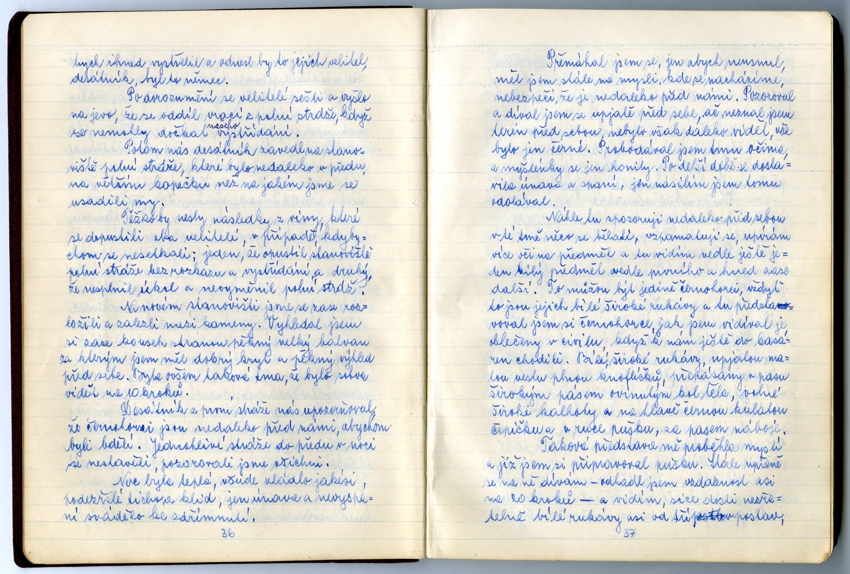 bych ihned vystřelil a odnesl by to jejich velitel,
desátník, byl to němec.
Po dorozumění se velitelé sešli a vyšlo
na jevo, že se oddíl vrací z polní stráže, když
se nemohly dočkat našeho vystřídání.
Potom nás desátník zavedl na stano-
viště polní stráže, které bylo nedaleko v předu,
na větším kopečku než na jakém jsme se
usadili my.
Těžko by nesly následky z viny, které
se dopustili oba velitelé, v případě, kdyby-
chom se nesetkali; jeden, že opustil stanoviště
polní stráže bez rozkazu a vystřídání, a druhý,
že nesplnil úkol a nevyměnil polní stráž.
Na novém stanovišti jsme se zase roz-
ložili a zalezli mezi kameny. Vyhledal jsem
si zase kousek stranou pěkný velký balvan
za kterým jsem měl dobrý kryt a pěkný výhled
před sebe. Byla ovšem taková tma, že bylo sotva
vidět na 10 kroků.
Desátník z první stráže nás upozorňoval,
že černohorci jsou nedaleko před námi, abychom
byli bdělí. Jednotlivé stráže do předu v noci
se nestavěli, pozorovali jsme všichni.
Noc byla teplá, všude vládlo jakési
podezřelé ticho a klid, jen únava a nevyspá-
ní svádělo ke zdřímnutí.
36
Přemáhal jsem se, jen abych neusnul,
měl jsem stále na mysli, kde se nacházíme,
nebezpečí, že je nedaleko před námi. Pozoroval
a díval jsem se upjatě před sebe, ač neznal jsem
terén před sebou, nebylo však daleko vidět, vše
bylo jen černé. Probodával jsem tmu očima,
a myšlenky se jen honily. Po delší době se dosta-
vila únava a spaní, jen násilím jsem tomu
odolával.
Náhle tu spozoruji nedaleko před sebou
v té tmě něco se bělati, vzpamatuji se, upírám
více oči na předmět a tu vidím vedle ještě je-
den bílý předmět vedle prvního a hned zase
další. To můžou být jedině černohorci, vždyť
to jsou jejich bílé široké rukávy a tu předsta-
voval jsem si černohorce, jak jsem vídával je
oblečeny v civilu, když k nám ještě do kasá-
ren chodili. Bílé, široké rukávy, upjatou ma-
lou vestu plnou knoflíčků, přepásány v pasu
širokým pásem ovinutým kol těla, volné
široké kalhoty a na hlavě černou kulatou
čepičku a v ruce pušku, za pasem náboje.
Taková představa mě proběhla myslí
a již jsem si připravoval pušku. Stále upřeně
se na ně dívám – odhadl jsem vzdálenost asi
na 20 kroků – a vidím, sice dosti nezře-
telně bílé rukávy asi od tří postav,
37